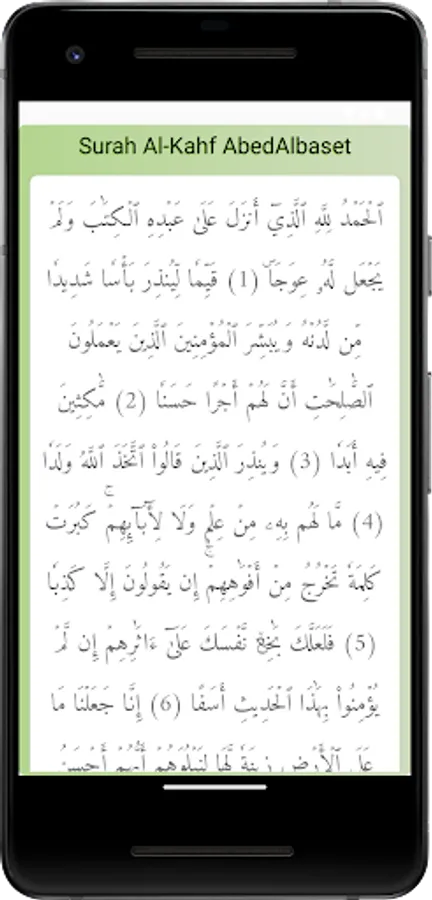 Surah Al-Kahf AbedAlbaset
ٱلۡحَمۡدُ لِلَّهِ ٱلَّذِيٓ أَنزَلَ عَلَىٰ عَبۡدِهِ ٱلۡكِتَٰبَ وَلَمۡ
يَجۡعَل لَّهُۥ عِوَجَاۜ (1) قَيِّمٗا لِّيُنذِرَ بَأۡسٗا شَدِيدٗا
مِّن لَّدُنۡهُ وَيُبَشِّرَ ٱلۡمُؤۡمِنِينَ ٱلَّذِينَ يَعۡمَلُونَ
ٱلصَّٰلِحَٰتِ أَنَّ لَهُمۡ أَجۡرًا حَسَنٗا (2) مَّٰكِثِينَ
فِيهِ أَبَدٗا (3) وَيُنذِرَ ٱلَّذِينَ قَالُواْ ٱتَّخَذَ ٱللَّهُ وَلَدٗا
(4) مَّا لَهُم بِهِۦ مِنۡ عِلۡمٖ وَلَا لِأٓبَآئِهِمۡۚ كَبُرَتۡ
كَلِمَةٗ تَخۡرُجُ مِنۡ أَفۡوَٰهِهِمۡۚ إِن يَقُولُونَ إِلَّا كَذِبٗا
(5) فَلَعَلَّكَ بَٰخِعٞ نَّفۡسَكَ عَلَىٰٓ ءَاثَٰرِهِمۡ إِن لَّمۡ
يُؤۡمِنُواْ بِهَٰذَا ٱلۡحَدِيثِ أَسَفًا (6) إِنَّا جَعَلۡنَا مَا
عَلَى ٱلۡأَرۡضِ زِينَةٗ لَّهَا لِنَبۡلُوَهُمۡ أَيُّهُمۡ أَحۡسَنُ